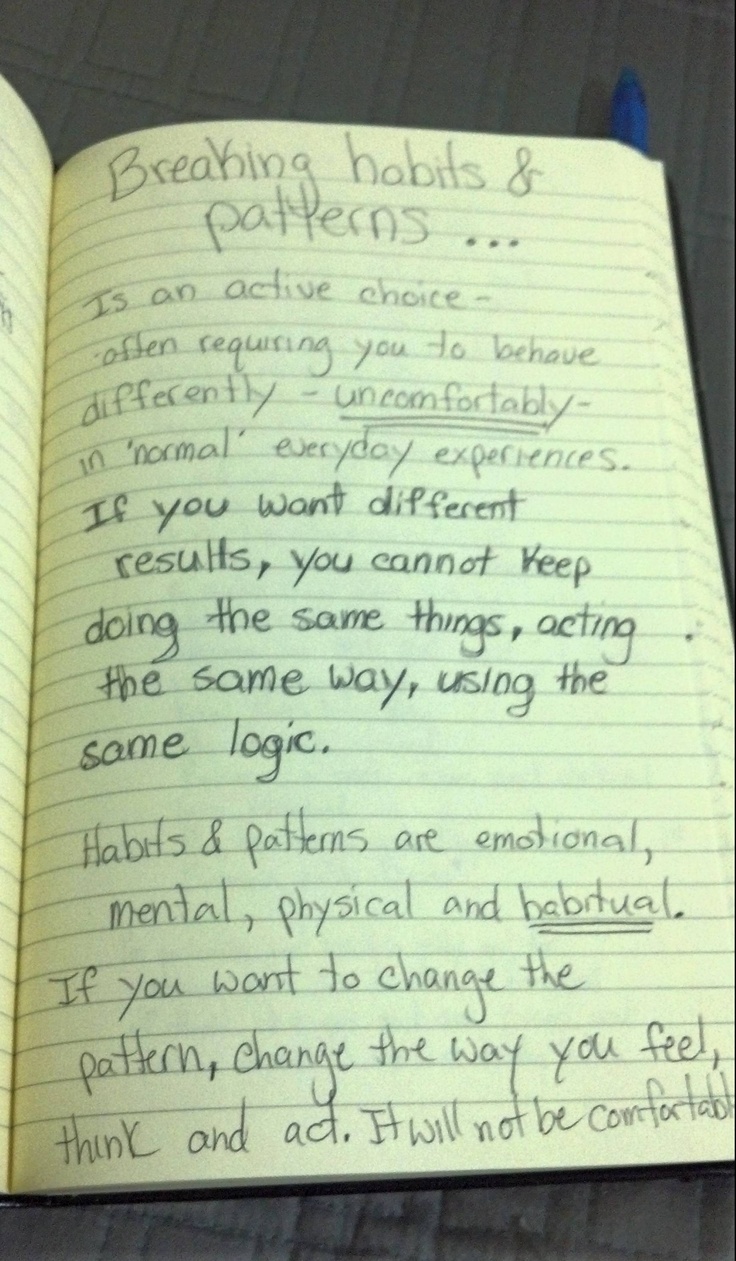 Breaking habits &
patterns ...
Is an active choice -
often requiring you to behave
differently - uncomfortably -
in 'normal' everyday experiences.
If you want different
results, you cannot keep
doing the same things, acting
the same way, using the
same logic.
Habits & patterns are emotional,
mental, physical and habitual.
If you want to change the
pattern, change the way you feel,
think and act. It will not be comfortabl